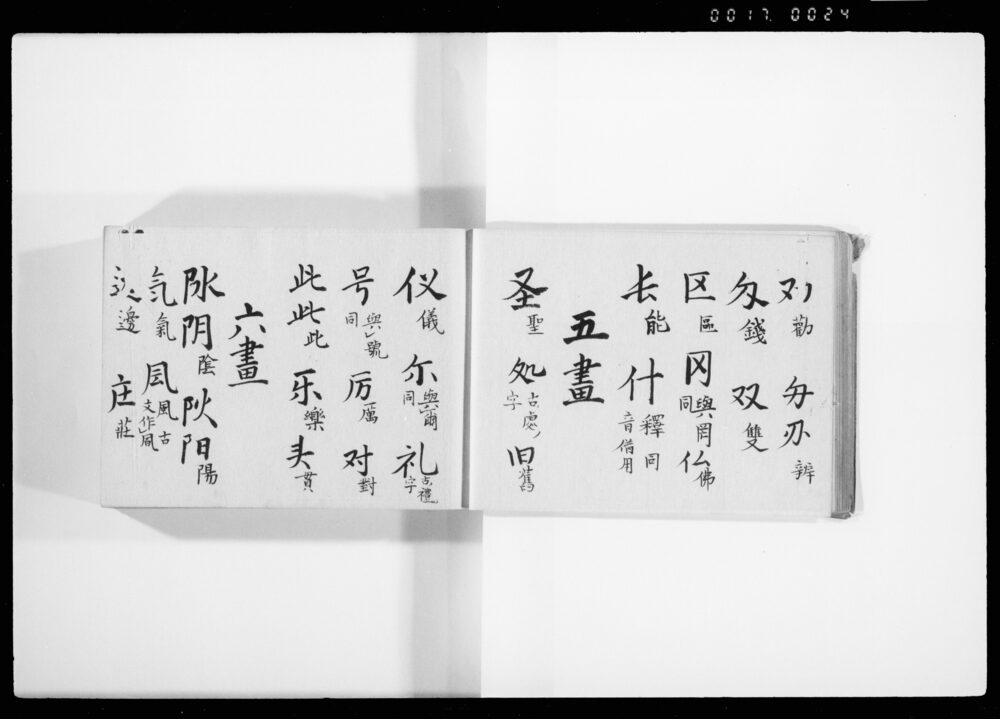 0017 0024
刘 勸 分 办 辨
匁 錢 双 雙
区 區 冈 與罔同 仏 佛
𠫓 能 什 釋同音借用
五畫
圣 聖 处 古處字 旧 舊
仪 儀 尔 與爾同 礼 古禮字
号 與號同 厉 厲 对 對
此 此 此 乐 樂 头 貫
六畫
阥 阴 陰 阦 阳 陽
気 氣 凨 風古文作凬
边 邊 庄 莊